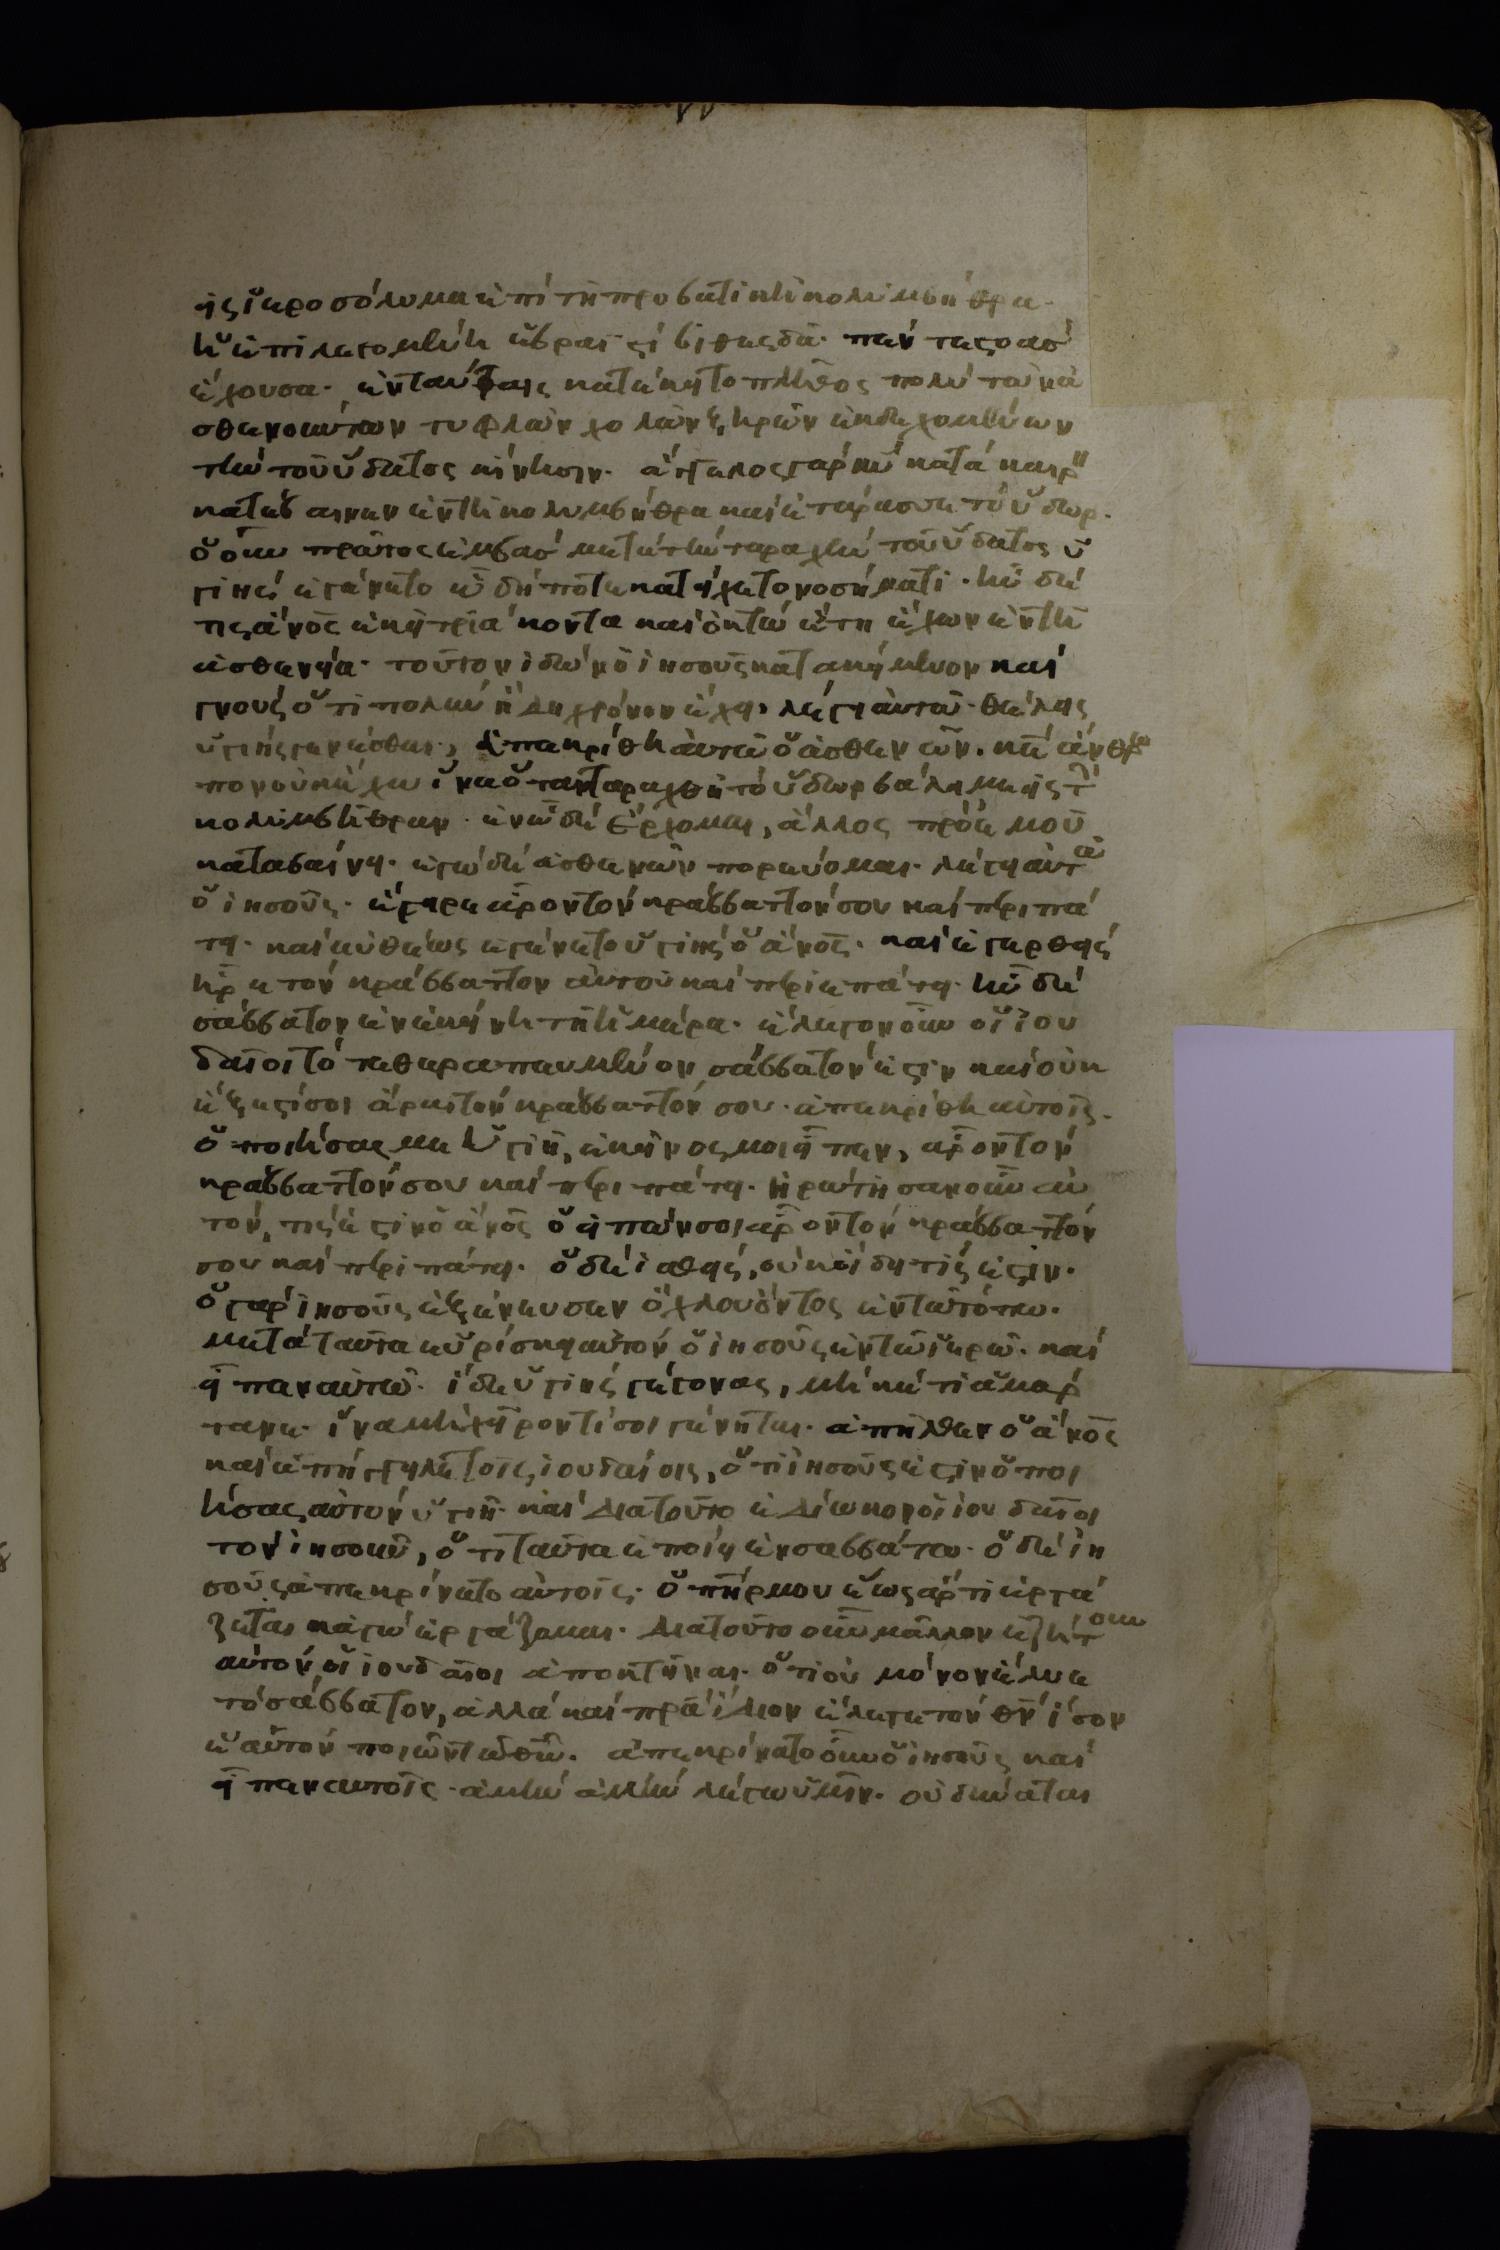 εἰς ἱεροσόλυμα ἐπὶ τῆ προβατικῆ κολυμβήθρα·
ἡ ἐπιλεγομένη ἑβραϊστὶ βιθεσδά· πέντε στοὰς
ἔχουσα· ἐν ταύταις κατέκειτο πλῆθος πολὺ τῶν ἀ
σθενούντων τυφλῶν χολῶν ξηρῶν ἐκδεχομένων
τὴν τοῦ ὕδατος κίνησιν. ἄγγελος γὰρ κυ κατὰ καιρὸν
κατέβαινεν ἐν τῆ κολυμβήθρα καὶ ἐταράσσετο ὕδωρ.
ὁ οὖν πρῶτος ἐμβὰς μετὰ τὴν ταραχὴν τοῦ ὕδατος ὑ
γιὴς ἐγένετο ὧ δήποτε κατείχετο νοσήματι. ἦν δέ
τις ἄνος ἐκεῖ τριάκοντα καὶ ὀκτὼ ἔτη ἔχων ἐν τῆ
ἀσθενεία· τοῦτον ἰδὼν ὁ ἰησοῦς κατακείμενον καὶ
γνοὺς ὅτι πολὺν ἤδη χρόνον ἔχει, λέγει αὐτῶ· θέλεις
ὑγιὴς γενέσθαι; ἀπεκρίθη αὐτῶ ὁ ἀσθενῶν. κε ἄνθρω
πον οὐκ ἔχω ἵνα ὅταν ταραχθῆ τὸ ὕδωρ βάλη με εἰς τὴν
κολυμβήθραν· ἐν ὧ δὲ ἔρχομαι, ἄλλος πρὸ ἐμοῦ
καταβαίνει. ἐγὼ δὲ ἀσθενῶν πορεύομαι. λέγει αὐτῶ
ὁ ἰησοῦς. ἔγειρε ἆρον τὸν κράββαττόν σου καὶ περιπά
τει. καὶ εὐθέως ἐγένετο ὑγιὴς ὁ ἄνος. καὶ ἐγερθεὶς
ἦρε τὸν κράββαττον αὐτοῦ καὶ περιεπάτει. ἦν δὲ
σάββατον ἐν ἐκείνη τῆ ἡμέρα. ἔλεγον οὖν οἱ ἰου
δαῖοι τῶ τεθεραπευμένω, σάββατόν ἐστιν καὶ οὐκ
ἔξεστί σοι ἆραι τὸν κράββαττόν σου. ἀπεκρίθη αὐτοῖς.
ὁ ποιήσας με ὑγιῆ, ἐκεῖνος μοι εἶπεν, ἆρον τὸν
κράββαττόν σου καὶ περιπάτει. ἠρώτησαν οὖν αὐ
τόν, τίς ἐστιν ὁ ἄνος ὁ εἰπών σοι ἆρον τὸν κράββαττόν
σου καὶ περιπάτει. ὁ δὲ ἰαθεὶς, οὐκ οἴδει τίς ἐστιν.
ὁ γὰρ ἰησοῦς ἐξένευσεν ὄχλου ὄντος ἐν τῶ τόπω.
μετὰ ταῦτα εὑρίσκει αὐτὸν ὁ ἰησοῦς ἐν τῶ ἱερῶ. καὶ
εἶπεν αὐτῶ. ἴδε ὑγιὴς γέγονας, μηκέτι ἁμάρ
τανε· ἵνα μὴ χεῖρόν τί σοι γένηται. ἀπῆλθεν ὁ ἄνος
καὶ ἀπήγγειλε τοῖς ἰουδαίοις, ὅτι ἰησοῦς ἐστιν ὁ ποι
ήσας αὐτὸν ὑγιῆ. καὶ διὰ τοῦτο ἐδίωκον οἱ ἰουδαῖοι
τὸν ἰησοῦν, ὅτι ταῦτα ἐποίει ἐν σαββάτω. ὁ δὲ ἰη
σοῦς ἀπεκρίνατο αὐτοῖς. ὁ πηρ μου ἕως ἄρτι ἐργά
ζεται κἀγὼ ἐργάζομαι. διὰ τοῦτο οὖν μᾶλλον ἐζήτουν
αὐτὸν οἱ ἰουδαῖοι ἀποκτεῖναι. ὅτι οὐ μόνον ἔλυε
τὸ σάββατον, ἀλλὰ καὶ πρα ἴδιον ἔλεγε τὸν θν ἴσον
ἑαυτὸν ποιῶν τῶ θῶ. ἀπεκρίνατο οὖν ὁ ἰησοῦς καὶ
εἶπεν αὐτοῖς. ἀμὴν ἀμὴν λέγω ὑμῖν. οὐ δύναται